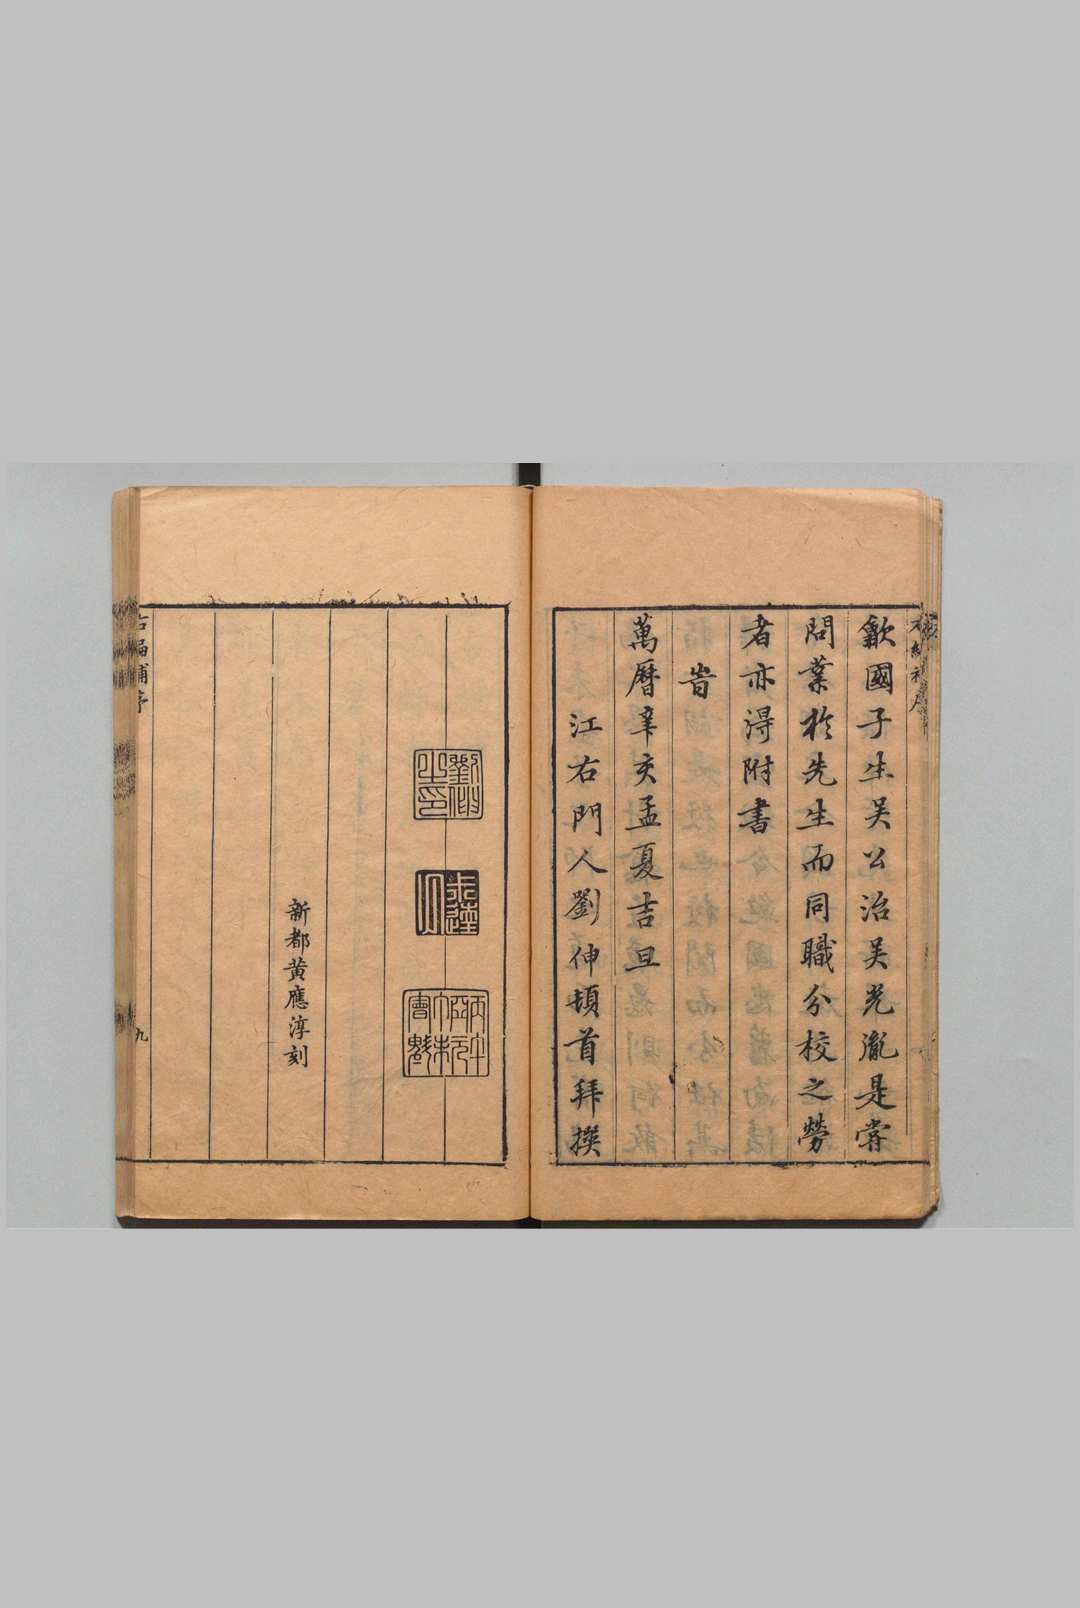 歙國子生吴公治吴光胤是嘗
問業於先生而同職分校之勞
者亦得附書
旹
萬曆辛亥孟夏吉旦
江右門人劉伸頓首拜撰
新都黄應淳刻
九